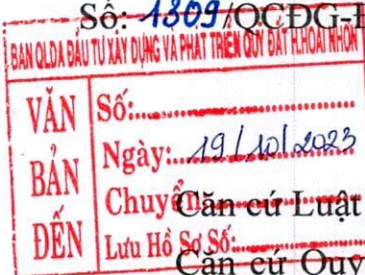 Số: 1309/QCĐG-Đ
BAN QLDA ĐẦU TƯ XÂY DỰNG VÀ PHÁT TRIỂN QUỸ ĐẤT H.HOÀI NHƠN
VĂN BẢN ĐẾN
Số:
Ngày: 19/10/2023
Chuyển:
Căn cứ Luật
Lưu Hồ Sơ Số:
Căn cứ Quy